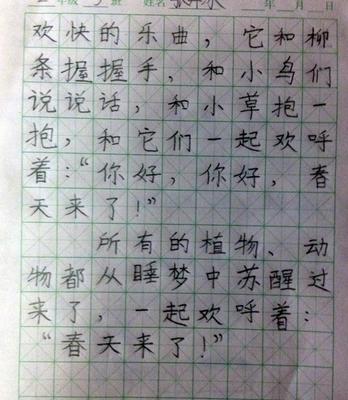 年级 班 姓名 年 月 日
欢快的乐曲，它和柳
条握握手，和小鸟们
说说话，和小草抱一
抱，和它们一起欢呼
着：“你好，你好，春
天来了！”
所有的植物、动
物都从睡梦中苏醒过
来了，一起欢呼着：
“春天来了！”